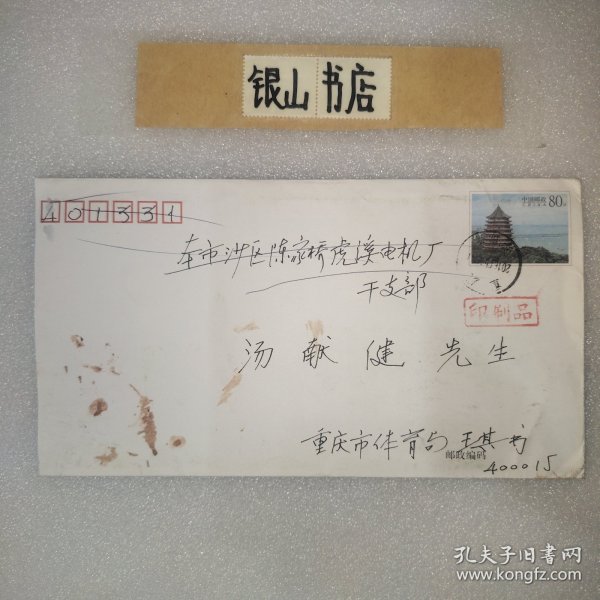 银山书店
401331
中国邮政 80分
本市沙区陈家桥虎溪电机厂
干支部
印制品
汤献健先生
重庆市体育局 王其书
邮政编码
400015
孔夫子旧书网
www.kongfz.com